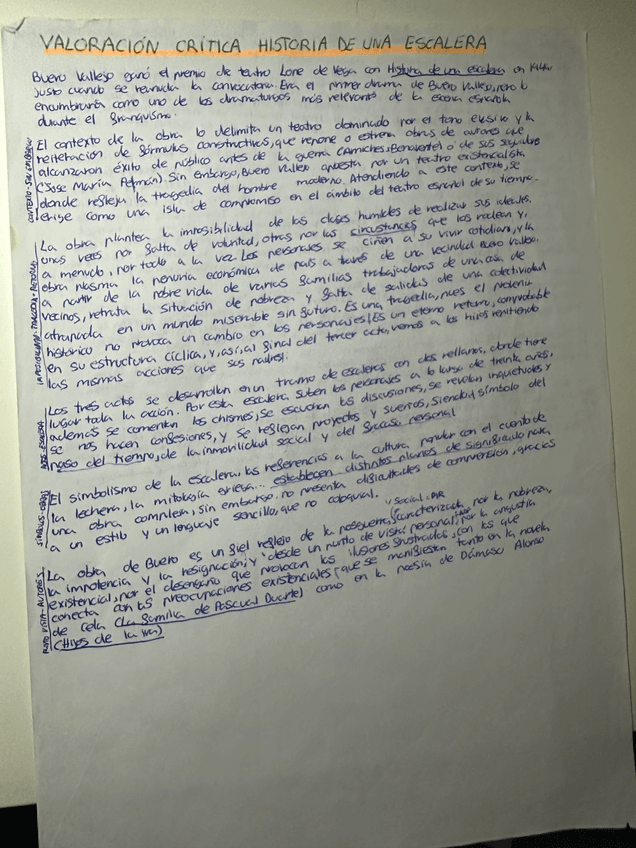 VALORACIÓN CRÍTICA HISTORIA DE UNA ESCALERA
Buero Vallejo ganó el premio de teatro Lope de Vega con Historia de una escalera en
justo cuando se reanuda la convocatoria. Era el primer drama de Buero Vallejo, pero lo
encumbraría como uno de los dramaturgos más relevantes de la escena española
durante el franquismo.
El contexto de la obra lo delimita un teatro dominado por el tono evasivo y la
reiteración de fórmulas constructivas, que repone o estrena obras de autores que
alcanzaron éxito de público antes de la guerra (Arniches, Benavente) o de sus seguidores
(Jose María Pemán). Sin embargo, Buero Vallejo apuesta por un teatro existencialista
donde refleja la tragedia del hombre moderno. Atendiendo a este contexto, se
erige como una isla de compromiso en el ámbito del teatro español de su tiempo.
La obra plantea la imposibilidad de las clases humildes de realizar sus ideales,
unas veces por falta de voluntad, otras por las circunstancias que los rodean y,
a menudo, por todo a la vez. Los personajes se ciñen a su vivir cotidiano, y la
obra plasma la penuria económica de país a través de una vecindad. Buero Vallejo,
a partir de la pobre vida de varias familias trabajadoras de una casa de
vecinos, retrata la situación de pobreza y falta de salidas de una colectividad
atrapada en un mundo miserable sin futuro. Es una tragedia, pues el devenir
histórico no provoca un cambio en los personajes. Es un eterno retorno, comprobable
en su estructura cíclica, y, así, al final del tercer acto, vemos a los hijos repitiendo
las mismas acciones que sus padres.
Los tres actos se desarrollan en un tramo de escalera con dos rellanos, donde tiene
lugar toda la acción. Por esta escalera suben los personajes a lo largo de treinta años,
además se comentan los chismes, se escuchan las discusiones, se revelan inquietudes y
se nos hacen confesiones, y se reflejan proyectos y sueños, siendo símbolo del
paso del tiempo, de la inmovilidad social y del fracaso personal
El simbolismo de la escalera, las referencias a la cultura popular con el cuento de
la lechera, la mitología griega... establecen distintos planos de significado para
una obra compleja, sin embargo, no presenta dificultades de comprensión, gracias
a un estilo y un lenguaje sencillo, que no coloquial.
La obra de Buero es un fiel reflejo de la posguerra, caracterizada por la pobreza,
la impotencia y la resignación; y desde un punto de vista personal, por la angustia
existencial, por el desengaño que provocan las ilusiones frustradas, con las que
conecta con las preocupaciones existenciales (que se manifiestan tanto en la novela
de Cela (La familia de Pascual Duarte) como en la poesía de Dámaso Alonso
(Hijos de la ira)